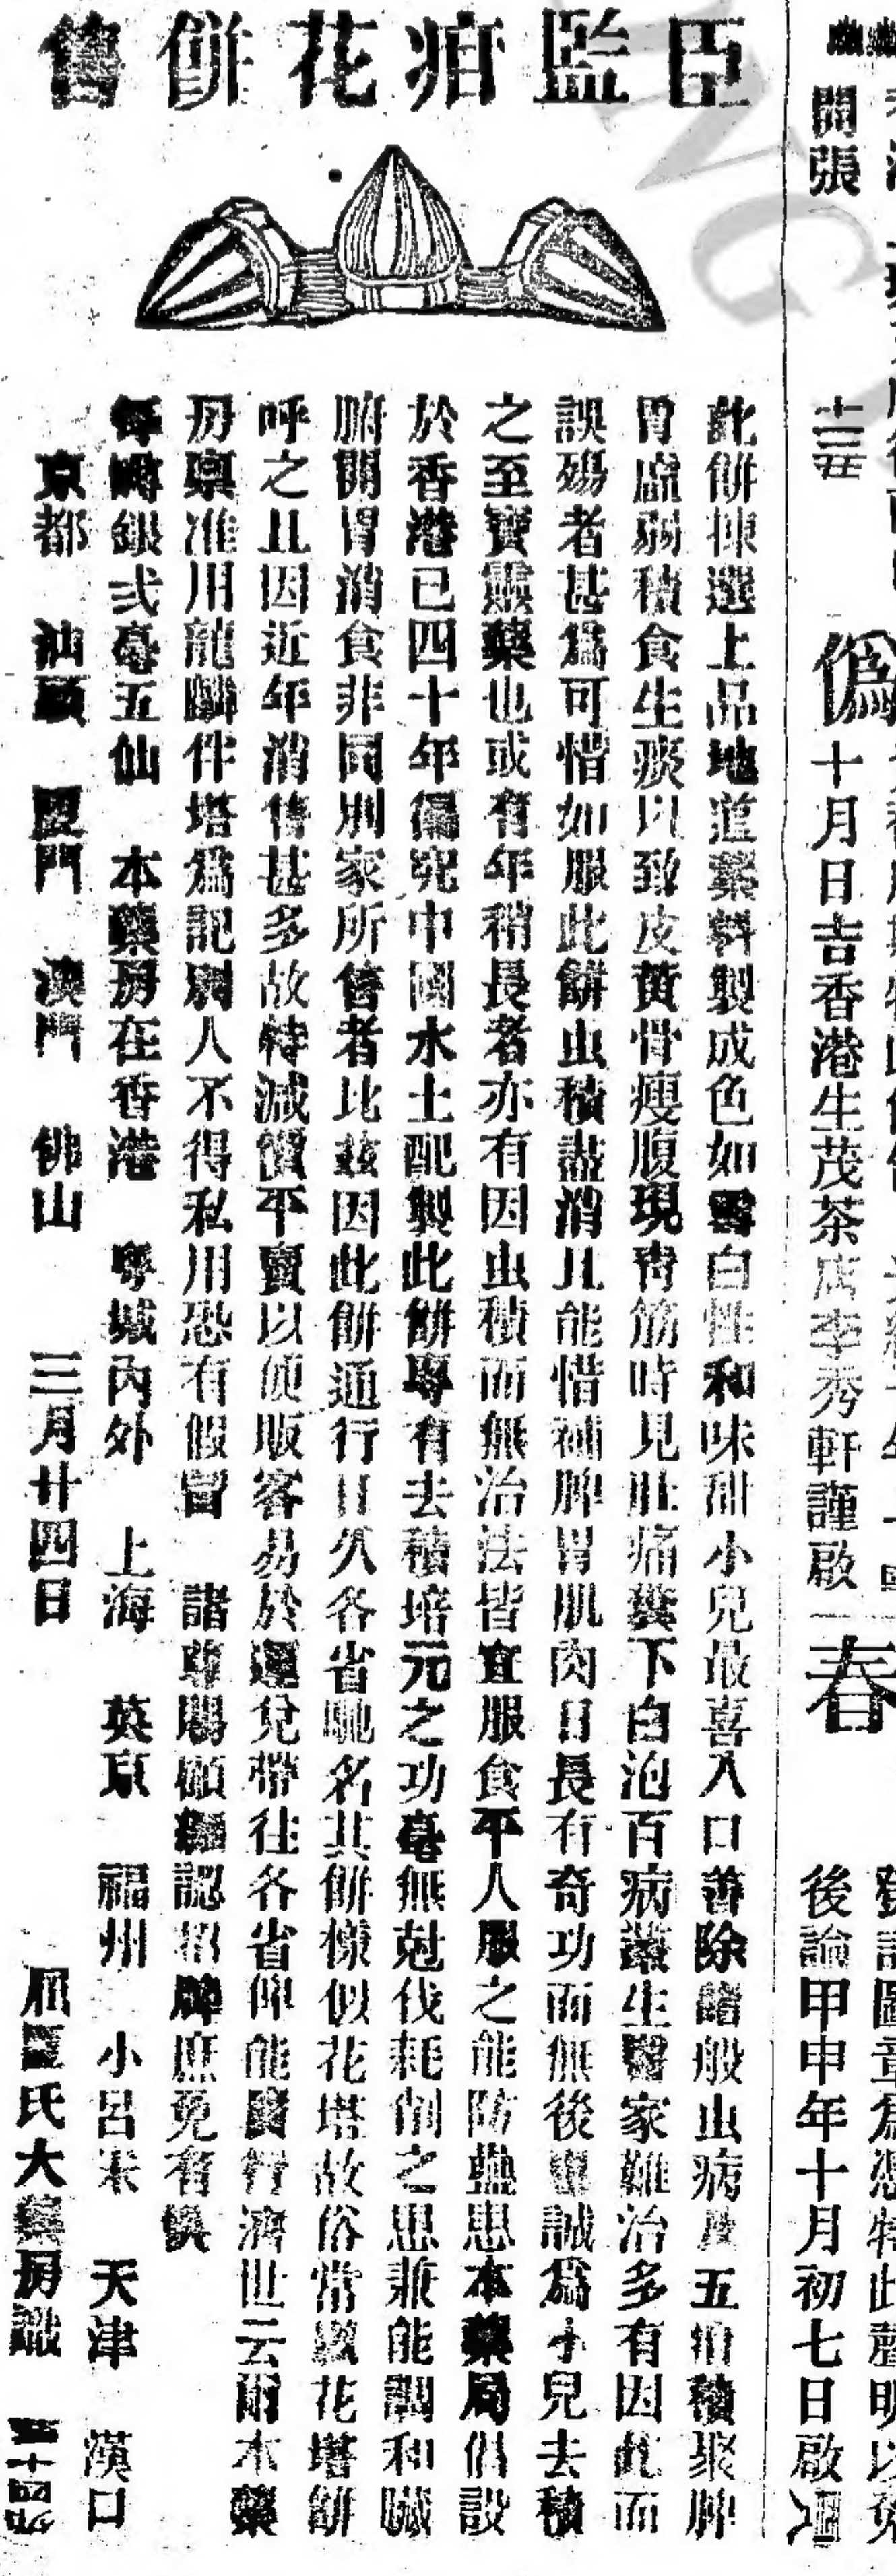 臣監疳花餅售
此餅揀選上品地道藥料製成色如雪白性和味甜小兒最喜入口善除諸般虫病及五疳積聚脾
胃虛弱積食生痰以致皮黃骨瘦腹現青筋時見肚痛糞下白泡百病叢生醫家難治多有因此而
誤殤者甚為可惜如服此餅虫積盡消且能惜補脾胃肌肉日長有奇功而無後患誠為小兒去積
之至寶靈藥也或有年稍長者亦有因虫積而無治法皆宜服食平人服之能防蠱患本藥局倡設
於香港已四十年徧究中國水土配製此餅專有去積培元之功毫無尅伐耗削之患兼能調和臟
腑開胃消食非同別家所售者比茲因此餅通行日久各省馳名其餅樣似花塔故俗常號花塔餅
呼之且因近年消售甚多故特減價平賣以便販客易於運兌帶往各省俾能廣行濟世云爾本藥
房稟准用龍麟伴塔為記別人不得私用恐有假冒 諸尊賜顧細認招牌庶免有悞
每嚀銀弍毫五仙 本藥房在香港 粵城內外 上海 英京 福州 小呂宋 天津 漢口
京都 汕頭 厦門 澳門 佛山 三月廿四日 屈臣氏大藥房識
開張
偽
十月日吉香港生茂茶店李秀軒謹啟
春
後論甲申年十月初七日啟